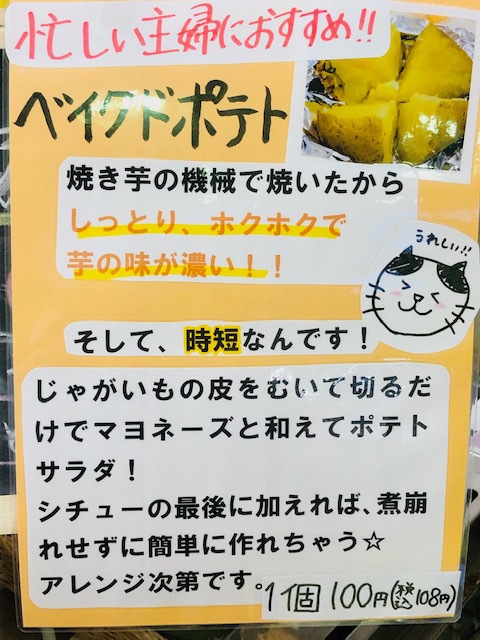 忙しい主婦におすすめ!!
ベイクドポテト
焼き芋の機械で焼いたから
しっとり、ホクホクで
芋の味が濃い！！
うれしい!!
そして、時短なんです！
じゃがいもの皮をむいて切るだ
けでマヨネーズと和えてポテト
サラダ！
シチューの最後に加えれば、煮崩
れせずに簡単に作れちゃう☆
アレンジ次第です。
1個100円(税込108円)